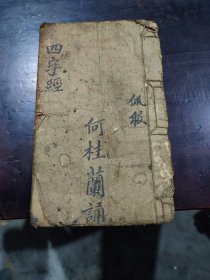 四字經
佩服
何桂蘭誦